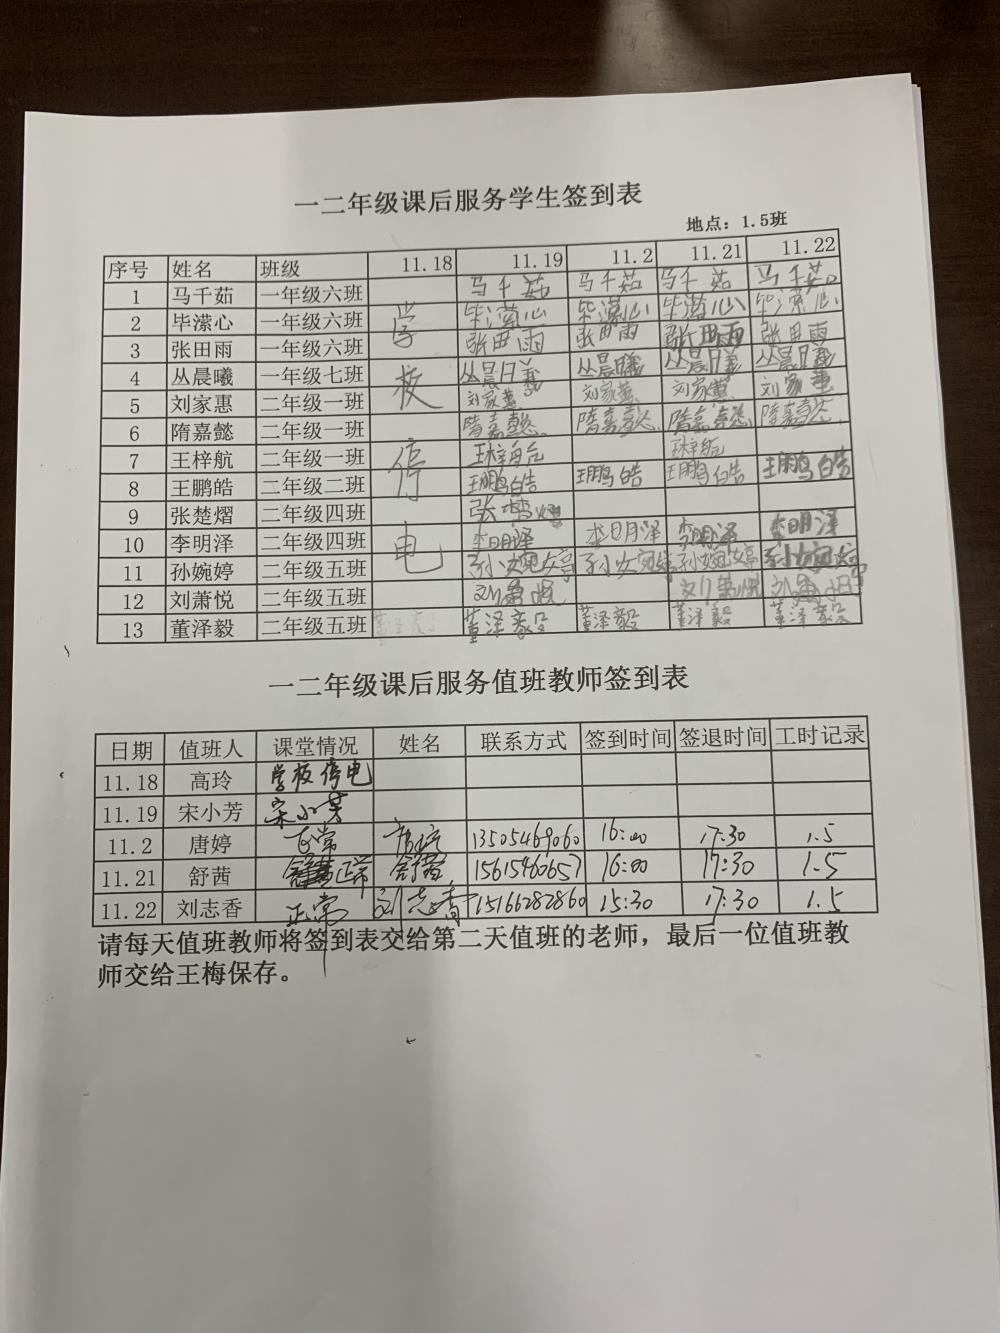 一二年级课后服务学生签到表
地点：1.5班
序号 姓名 班级 11.18 11.19 11.2 11.21 11.22
1 马千茹 一年级六班 马千茹 马千茹 马千茹 马千茹
2 毕潆心 一年级六班 学 毕潆心 毕潆心 毕潆心 毕潆心
3 张田雨 一年级六班 张田雨 张田雨 张田雨 张田雨
4 丛晨曦 一年级七班 校 丛晨曦 丛晨曦 丛晨曦
5 刘家惠 二年级一班 刘家惠 刘家惠 刘家惠 刘家惠
6 隋嘉懿 二年级一班 停 隋嘉懿 隋嘉懿 隋嘉懿 隋嘉懿
7 王梓航 二年级一班 王梓航 王梓航
8 王鹏皓 二年级二班 王鹏皓 王鹏皓 王鹏皓 王鹏皓
9 张楚熠 二年级四班 张楚熠
10 李明泽 二年级四班 电 李明泽 李明泽 李明泽 李明泽
11 孙婉婷 二年级五班 孙婉婷 孙婉婷 孙婉婷 孙婉婷
12 刘萧悦 二年级五班 刘萧悦 刘萧悦 刘萧悦
13 董泽毅 二年级五班 董泽毅 董泽毅 董泽毅 董泽毅 董泽毅
一二年级课后服务值班教师签到表
日期 值班人 课堂情况 姓名 联系方式 签到时间 签退时间 工时记录
11.18 高玲 学校停电
11.19 宋小芳 宋小芳
11.2 唐婷 正常 唐婷 13505469060 16:00 17:30 1.5
11.21 舒茜 正常 舒茜 15615460657 16:00 17:30 1.5
11.22 刘志香 正常 刘志香 15166282860 15:30 17:30 1.5
请每天值班教师将签到表交给第二天值班的老师，最后一位值班教
师交给王梅保存。